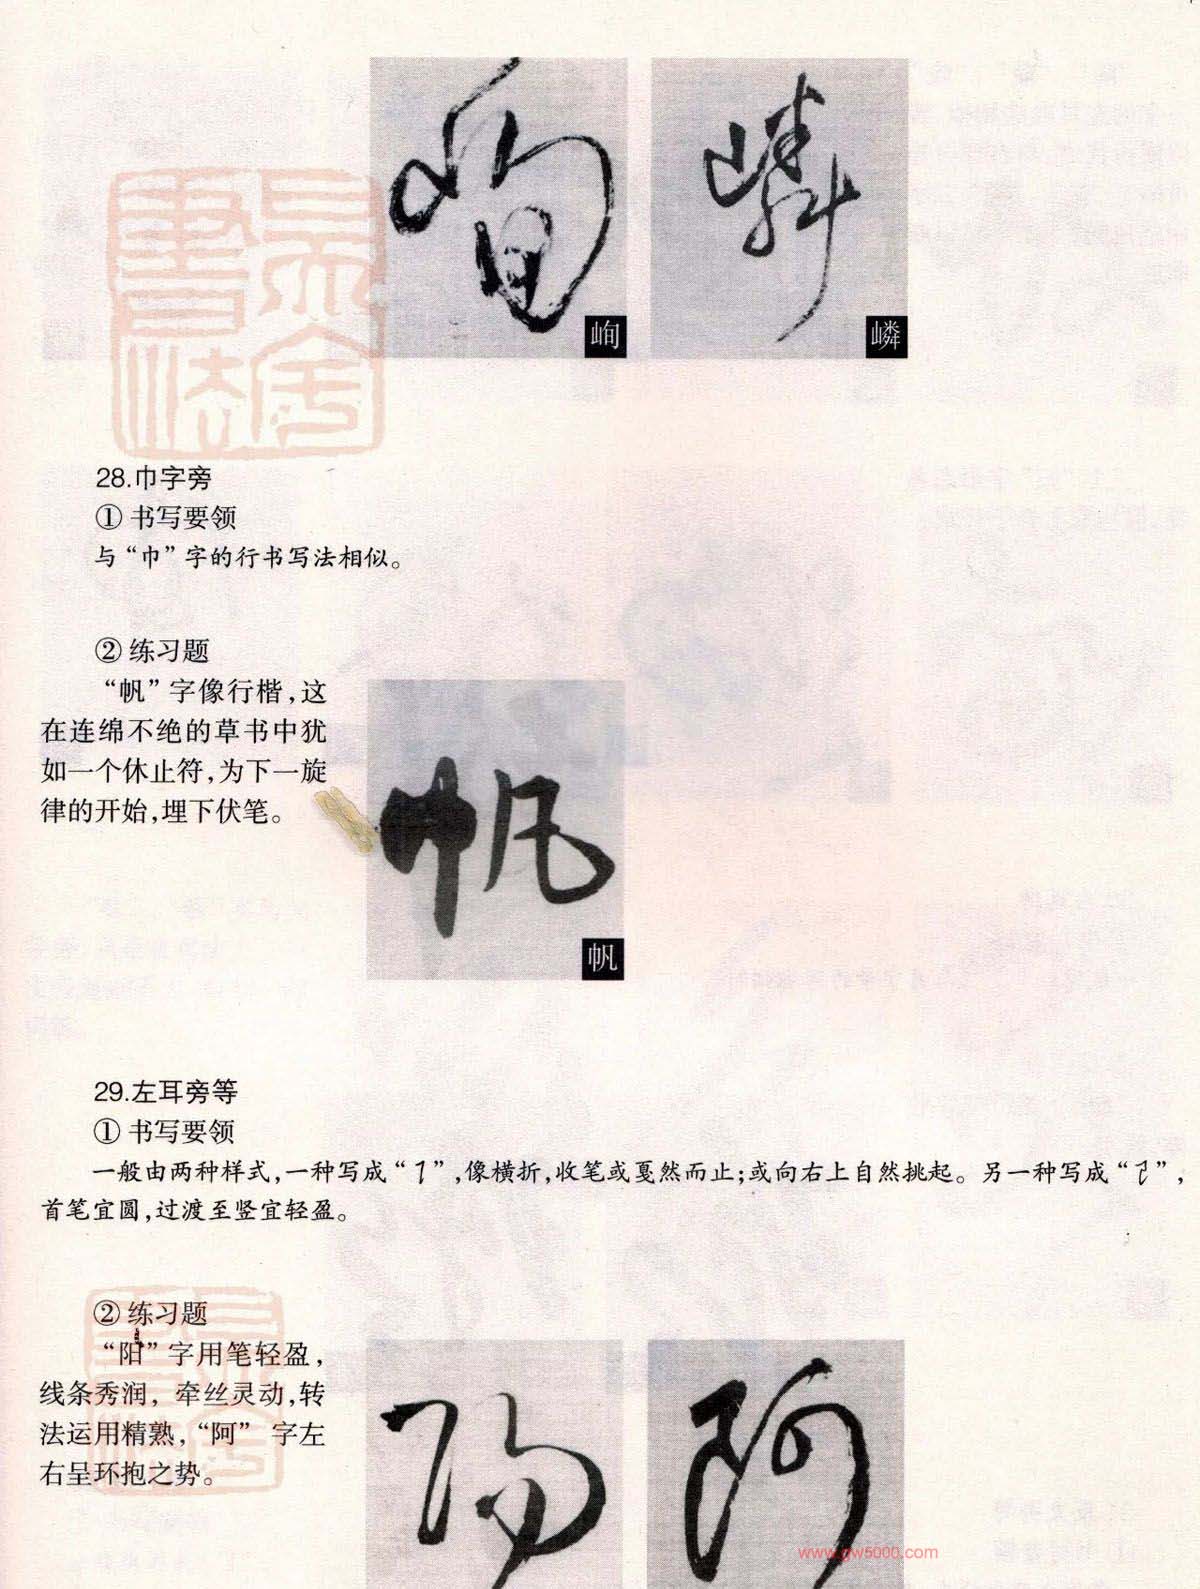 峋
嶙
28.巾字旁
① 书写要领
与“巾”字的行书写法相似。
② 练习题
“帆”字像行楷,这
在连绵不绝的草书中犹
如一个休止符,为下一旋
律的开始,埋下伏笔。
帆
29.左耳旁等
① 书写要领
一般由两种样式,一种写成“”,像横折,收笔或戛然而止;或向右上自然挑起。另一种写成“”,
首笔宜圆,过渡至竖宜轻盈。
② 练习题
“阳”字用笔轻盈,
线条秀润,牵丝灵动,转
法运用精熟,“阿” 字左
右呈环抱之势。
www.gw5000.com